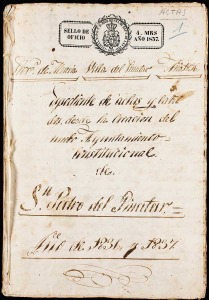 ACTAS
1
SELLO DE OFICIO
4. MRS AÑO 1837.
de Murcia Villa del Pinatar
Espediente de
dos, desde la creacion del
Ayuntamiento
constitucional
etc.
Sn. Pedro del Pinatar.
Año de 1836, y 1837